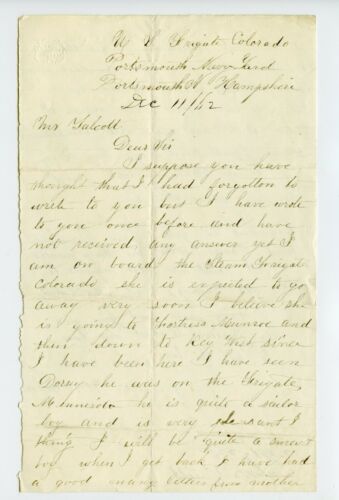 U S Frigate Colorado
Portsmouth Navy Yard
Portsmouth N Hampshire
Dec 11/62
Mr Talcott
Dear Sir
I suppose you have
thought that I had forgotton to
write to you but I have wrote
to you once before and have
not received any answer yet I
am on board the Steam Frigate
Colorado she is expected to go
away very soon I believe she
is going to Fortress Munroe and
then down to Key West since
I have been here I have seen
Dorsy he was on the Frigate
Minnesota he is quite a sailor
boy and is very I
think I will be quite a smart
boy when I get back I have had
a good many letters from mother